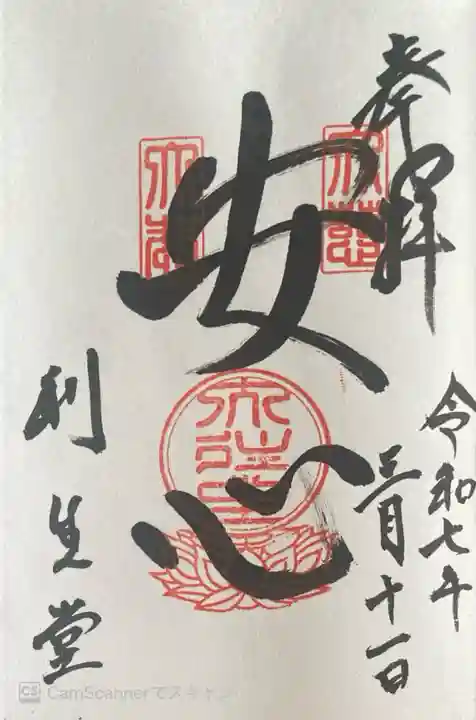 奉拝
令和七年
三月十一日
安心
利生堂
CS CamScannerでスキャン